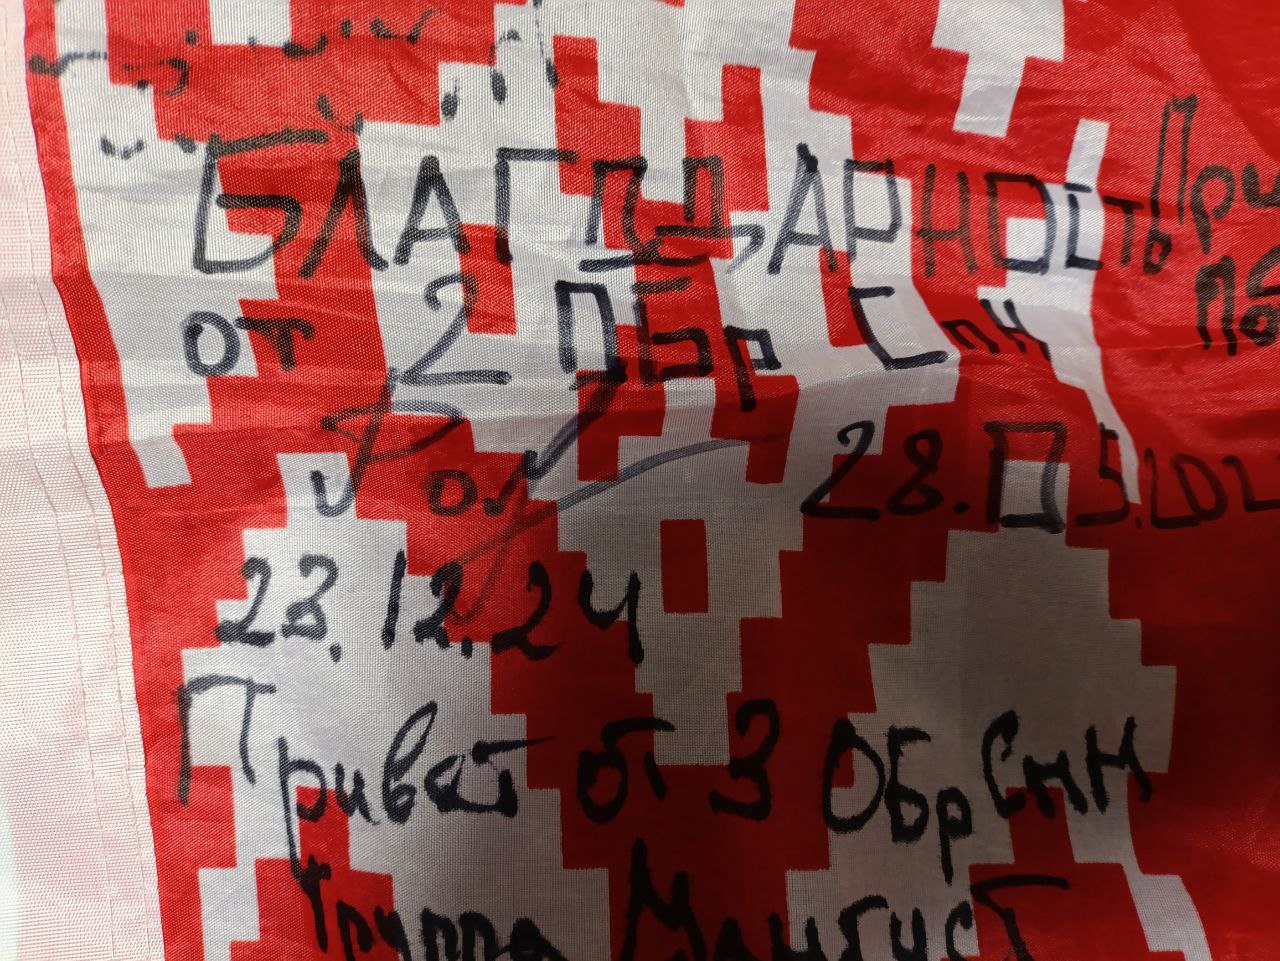 БЛАГОДАРНОСТЬ
от 2 ОБр СпН
28.05.202
23.12.24
Привет от 3 ОБр Спн
Группа Мангуст